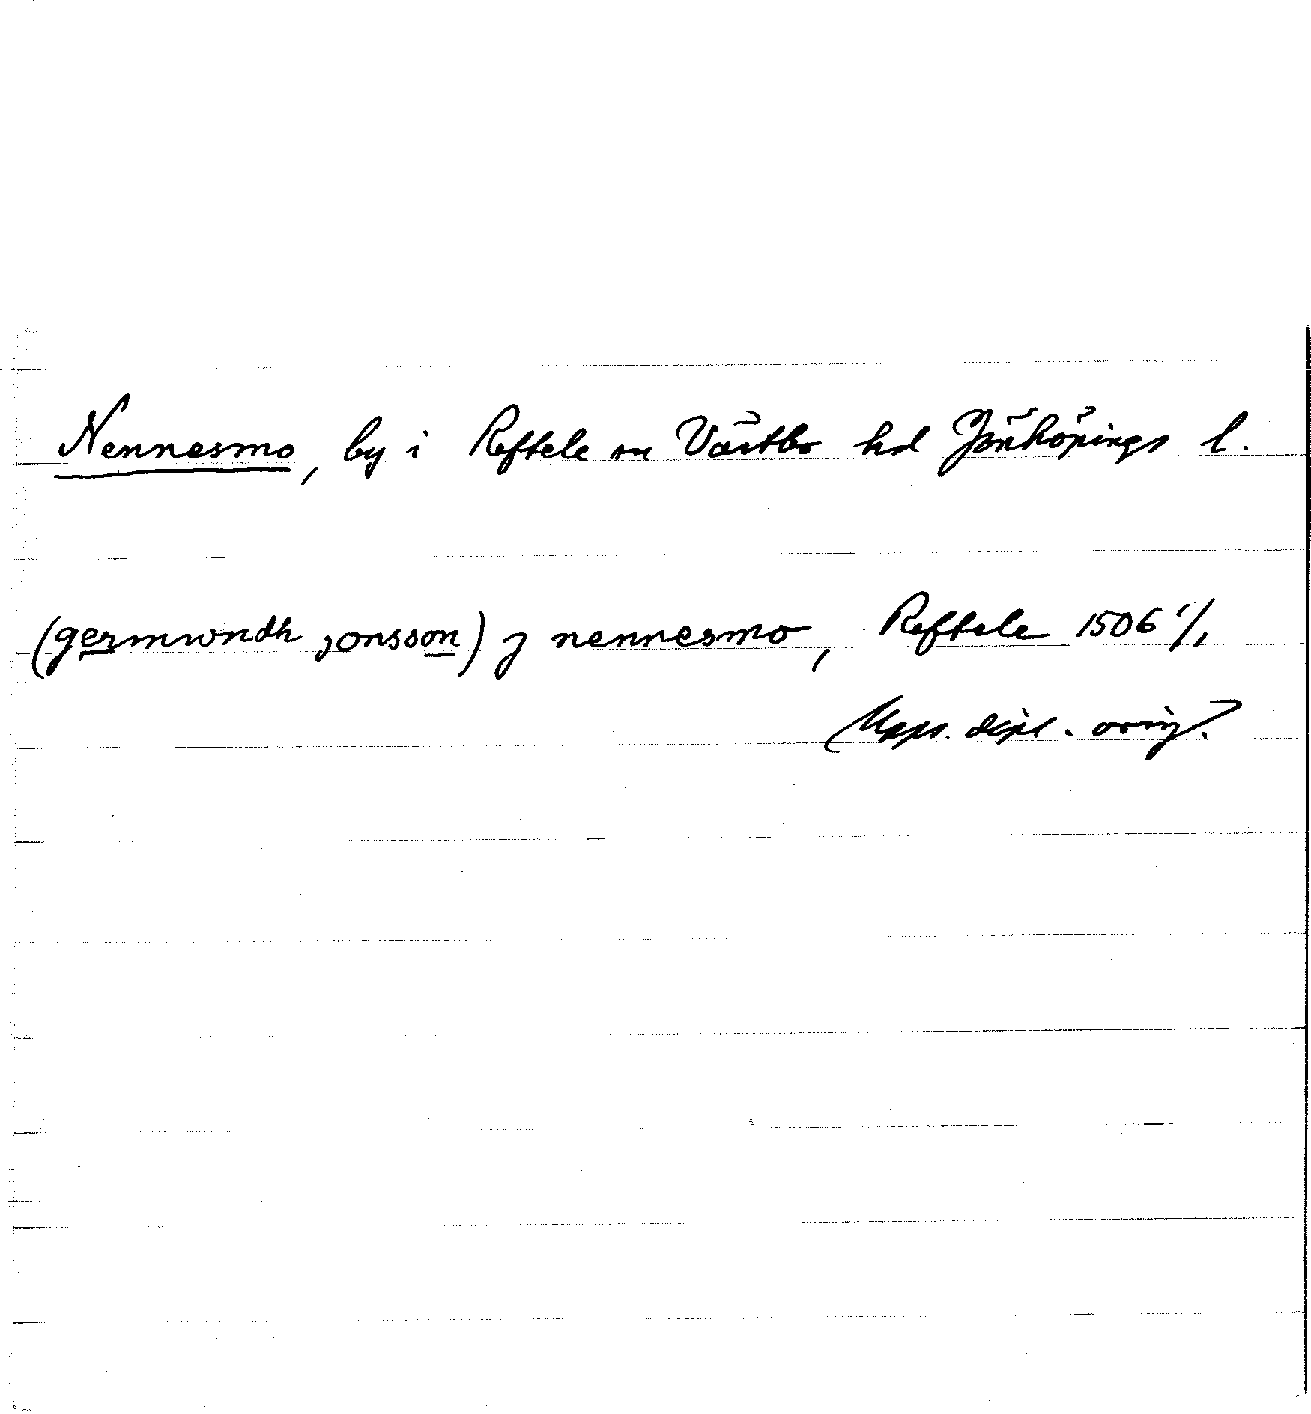 Nennesmo, by i Reftele sn Västbo hd Jönköpings l.
(germwndh jonsson) j nennesmo, Reftele 1506 1/1
Upps. dipl. orig.